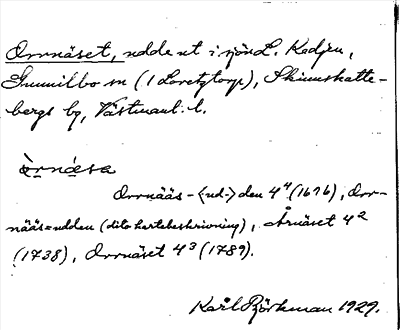 Orrnäset, udde ut i sjön L. Kedjen,
Gunnilbo sn (1 Loretztorp), Skinnskatte-
bergs bg, Västmanl. l.
òrnǽsa
Orrnääs-<ud-> den 4⁴ (1676), Orr-
nääs=udden (dito kartebeskrivning), Årnäset 4²
(1738), Orrnäset 4³ (1789).
Karl Björkman 1929.